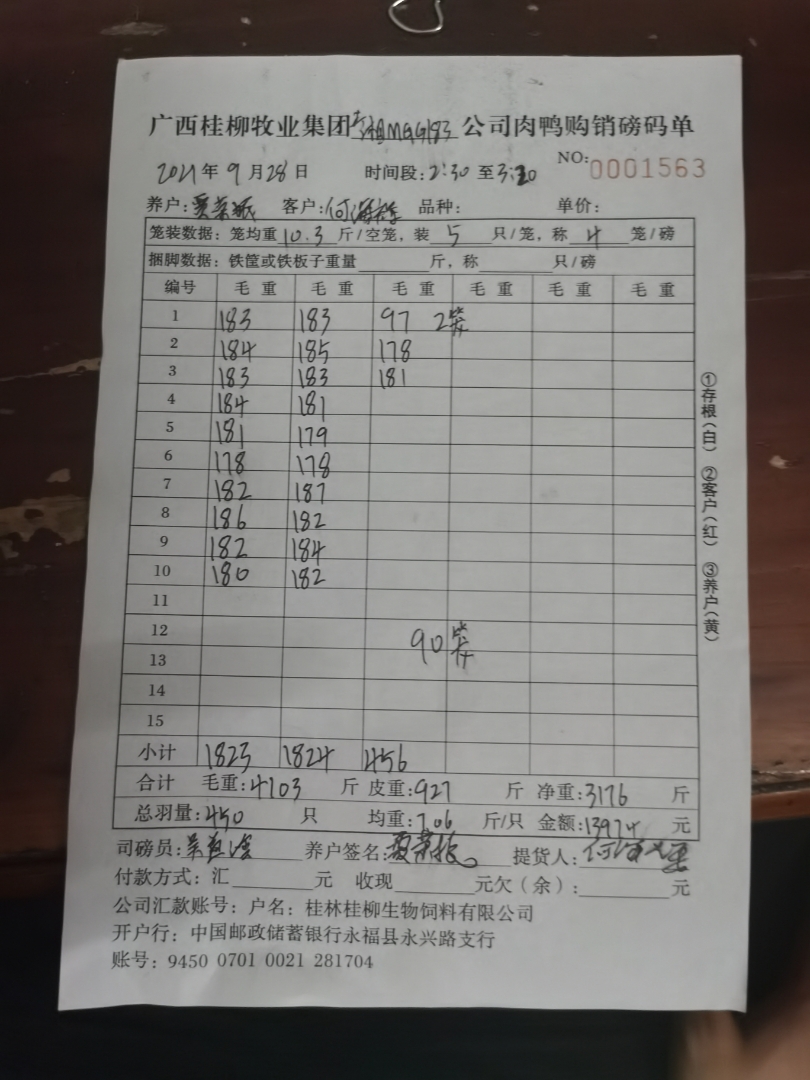 广西桂柳牧业集团 MGG183 公司肉鸭购销磅码单
2021年9月28日 时间段:2:30至3:20 NO:0001563
养户: 客户:何海 品种: 单价:
笼装数据:笼均重10.3斤/空笼,装5只/笼,称4笼/磅
捆脚数据:铁筐或铁板子重量 斤,称 只/磅
编号 毛重 毛重 毛重 毛重 毛重 毛重
1 183 183 97 2笼
2 184 185 178
3 183 183 181
4 184 181
5 181 179
6 178 178
7 182 187
8 186 182
9 182 184
10 180 182
11
12
90笼
13
14
15
小计 1823 1824 456
合计 毛重:4103 斤 皮重:927 斤 净重:3176 斤
总羽量:450 只 均重:7.06 斤/只 金额:13974 元
司磅员: 养户签名: 提货人:何海
付款方式:汇 元 收现 元欠(余): 元
公司汇款账号:户名:桂林桂柳生物饲料有限公司
开户行:中国邮政储蓄银行永福县永兴路支行
账号:9450 0701 0021 281704
①存根(白) ②客户(红) ③养户(黄)